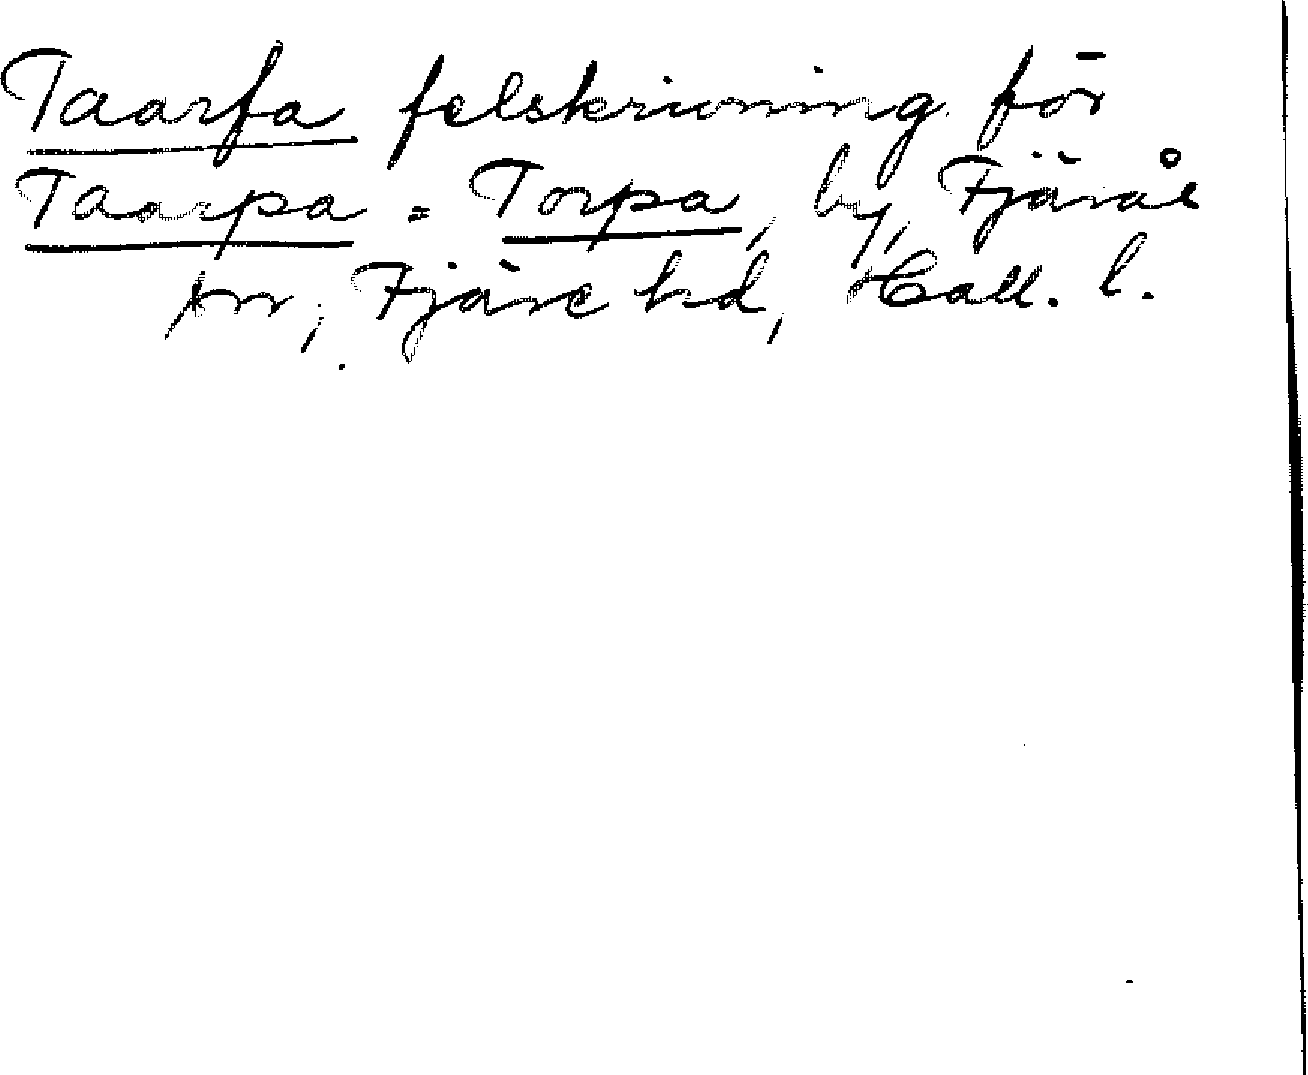 Taarfa felskrivning för
Taarpa = Torpa, by, Fjärås
sn, Fjäre hd, Hall. l.